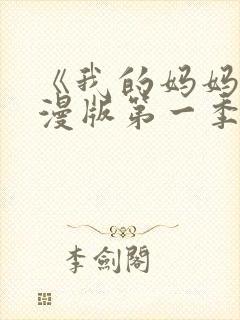 《我的妈妈
漫版第一季
李劍閣